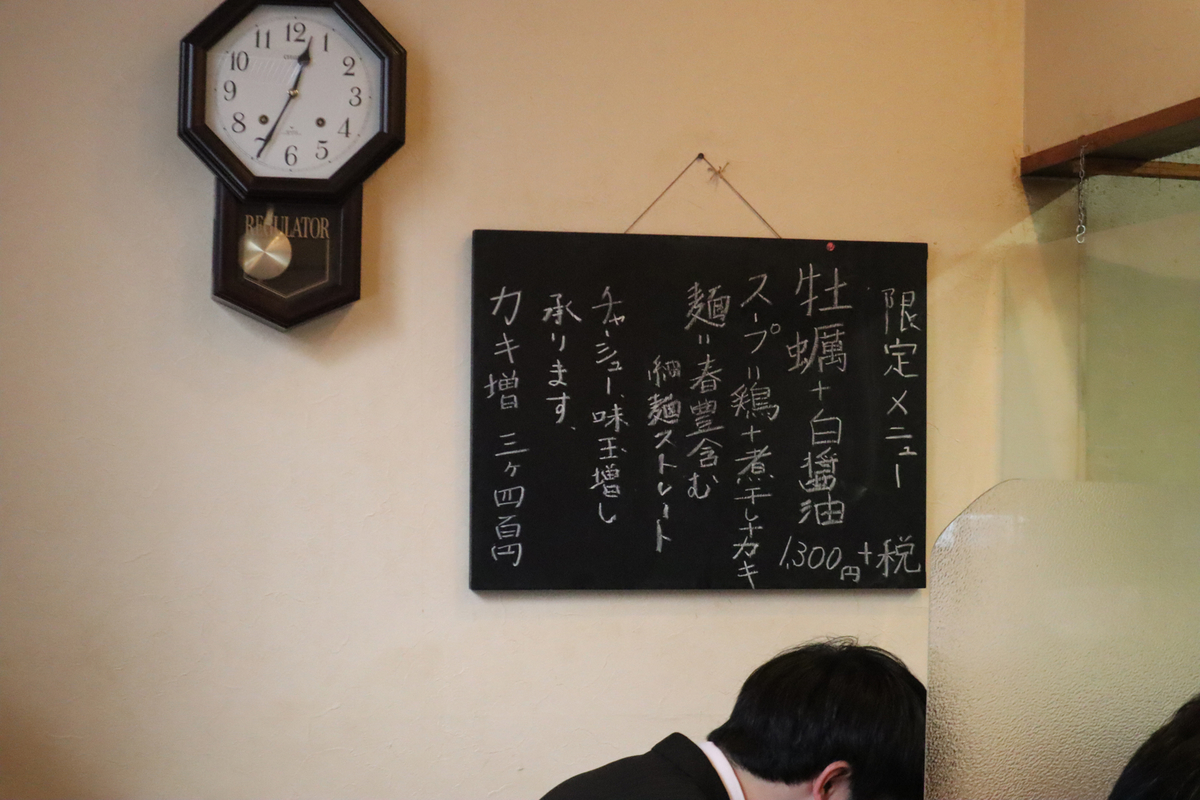 12
1
2
3
4
5
6
7
8
9
10
11
REGULATOR
限定メニュー
牡蠣+白醤油
1,300円+税
スープ=鶏+煮干し+カキ
麺=春豊含む
細麺ストレート
チャーシュー、味玉増し
承ります、
カキ増 三ヶ四百円